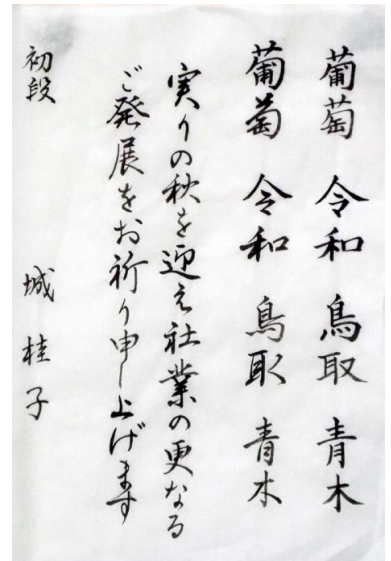 葡萄 令和 鳥取 青木
葡萄 令和 鳥取 青木
実りの秋を迎え社業の更なる
ご発展をお祈り申し上げます
初段 城桂子